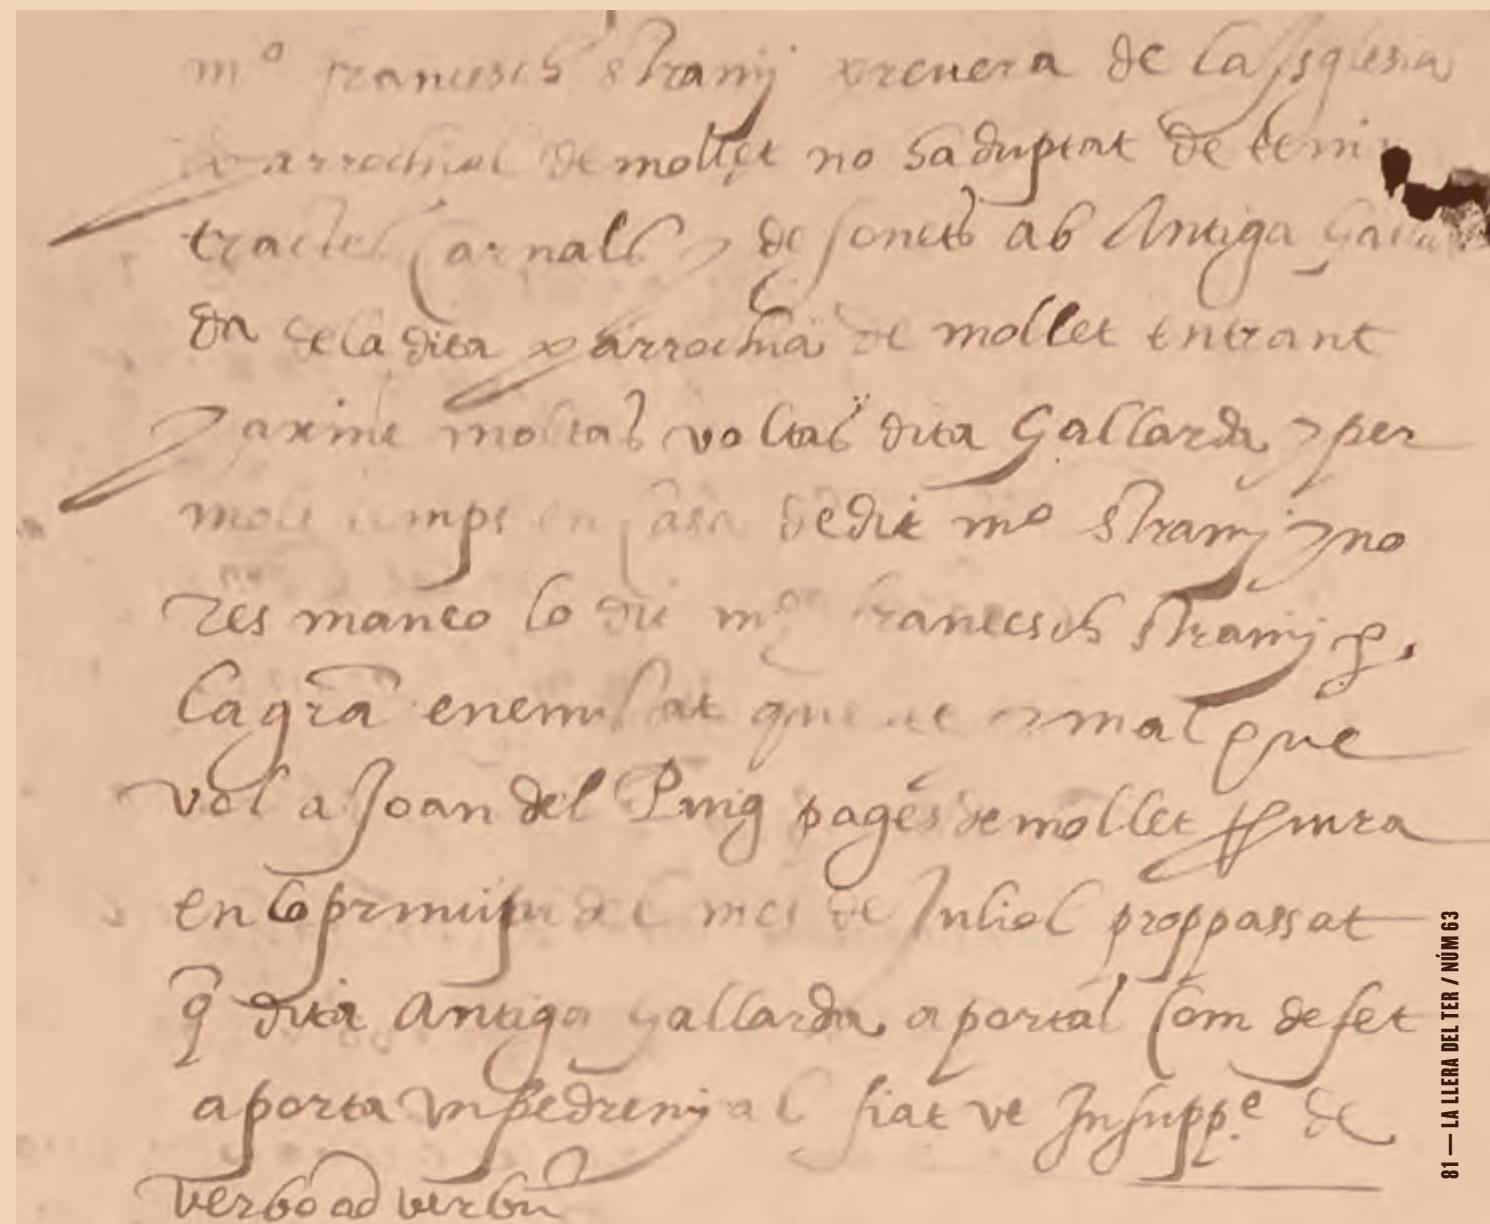 mº francesch stranÿ prevere de la Isglesia
parrochial de mollet no ha duptat de teni
tractes carnals y desonets ab Antiga Galla
da de la dita parrochia de mollet entrant
y axint moltas voltas dita Gallarda y per
molt temps en casa de dit mº stranÿ y no
res manco lo dit mº francesch stranÿ p.
la gra enemistat que te y mal que
vol a Joan del Puig pages de mollet
en lo principi del mes de Juliol proppassat
q dita Antiga Gallarda aportas com de fet
aporta un pedrenyal fiat ut In suppe de
verbo ad verbu
81 — LA LLERA DEL TER / NÚM 63